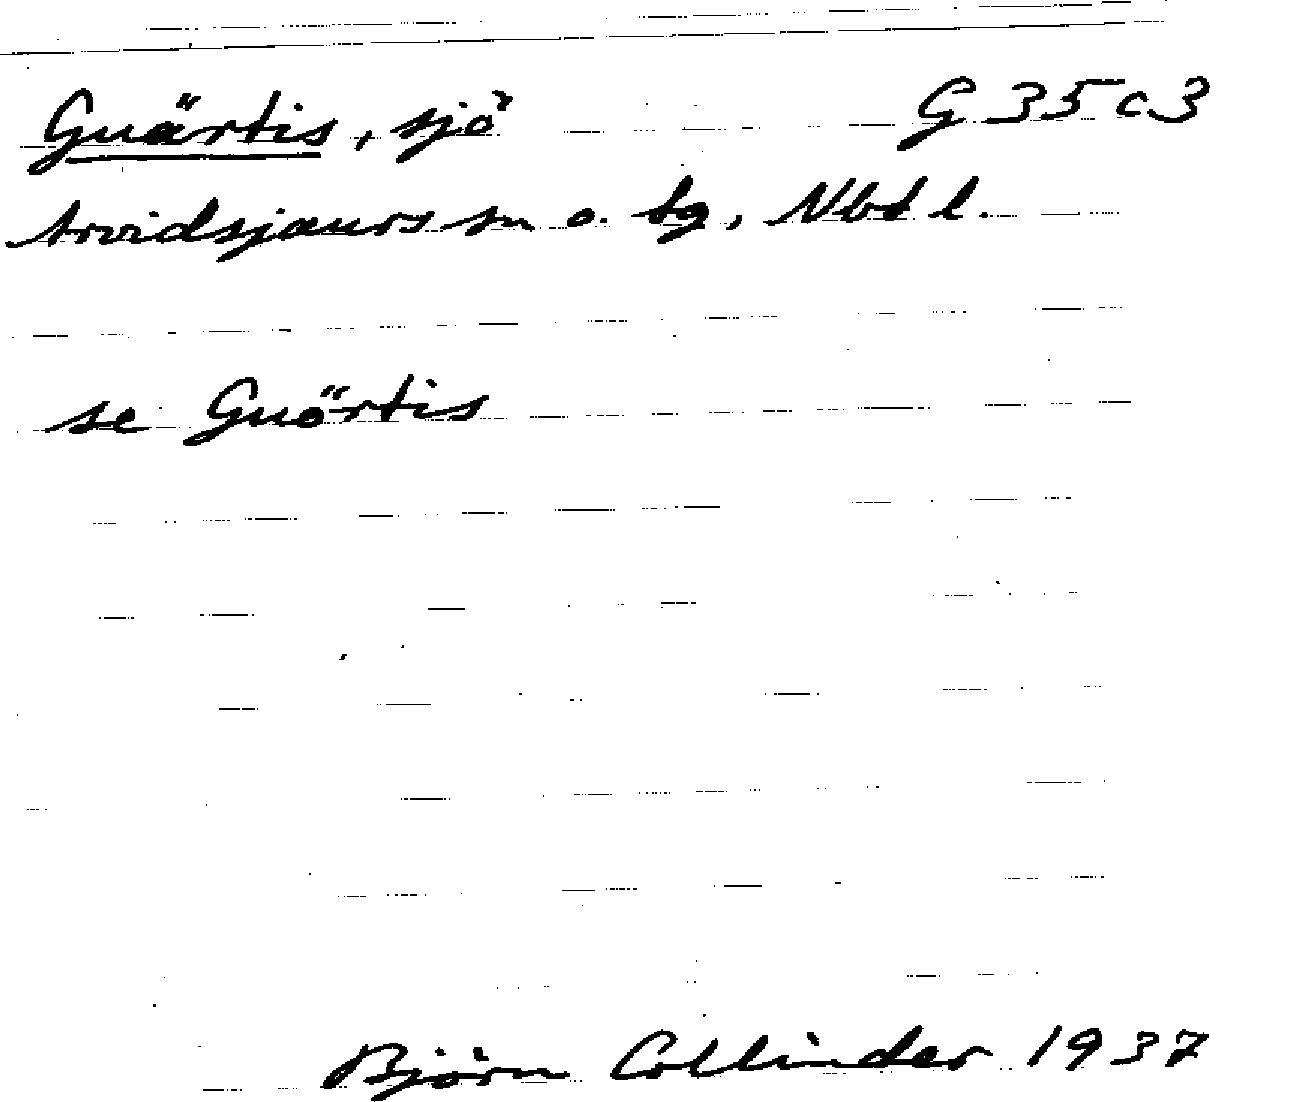 Guärtis, sjö G 35 c 3
Arvidsjaurs sn o. tg, Nbt l.
se Guörtis
Björn Collinder 1937